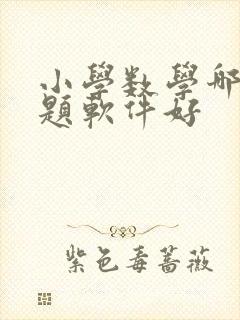 小學數學哪
題軟件好
紫色毒蔷薇